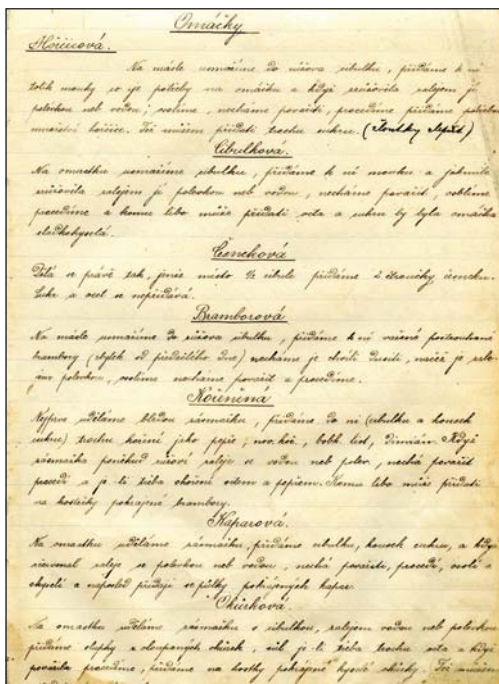 Omáčky
Hořčicová.
Na másle usmažíme do růžova cibulku, přidáme k ní
tolik mouky co je potřeby na omáčku a když zrůžověla zalejem ji
polévkou neb vodou; osolíme, necháme povařit, procedíme přidáme
množství hořčice. Též můžem přidati trochu cukru. (žloutky
Cibulková.
Na omastku usmažíme cibulku, přidáme k ní mouku a jakmile
zrůžověla zalejem ji polévkou neb vodou, necháme povařit, osolíme
procedíme a komu libo může přidati octa a cukru by byla omáčka
sladkokyselá.
Česneková
Dělá se právě tak, jenže místo ½ cibule přidáme 2 stroužky česneku.
Cukr a ocet se nepřidává.
Bramborová
Na másle usmažíme do růžova cibulku, přidáme k ní vařené
brambory (zbytek od předešlého dne) necháme je chvíli dusiti, načež je zale-
jem polévkou, osolíme necháme povařit a procedíme.
Kořeněná
Nejprve uděláme bledou zásmažku, přidáme do ní (cibulku a kousek
cukru) trochu koření jako pepř, nov. koř., bobk. list, dimián. Když
zásmažka poněkud růžoví zaleje se vodou neb polév., nechá povařit
procedí a je-li třeba okoření octem a pepřem. Komu libo může přidati
na kostičky pokrájené brambory.
Kaparová.
Na omastku uděláme zásmažku, přidáme cibulku, kousek cukru, a když
zaleje se polévkou neb vodou, nechá povařit, procedí, osolí a
okyselí a naposled přidají se půlky pokrájených kapar.
Okurková.
Na omastku uděláme zásmažku s cibulkou, zalejem vodou neb polévkou
přidáme slupky z oloupaných okurek, sůl je-li třeba trochu octa a když
povařila procedíme, přidáme na kostky pokrájené kyselé okurky. Též můžem